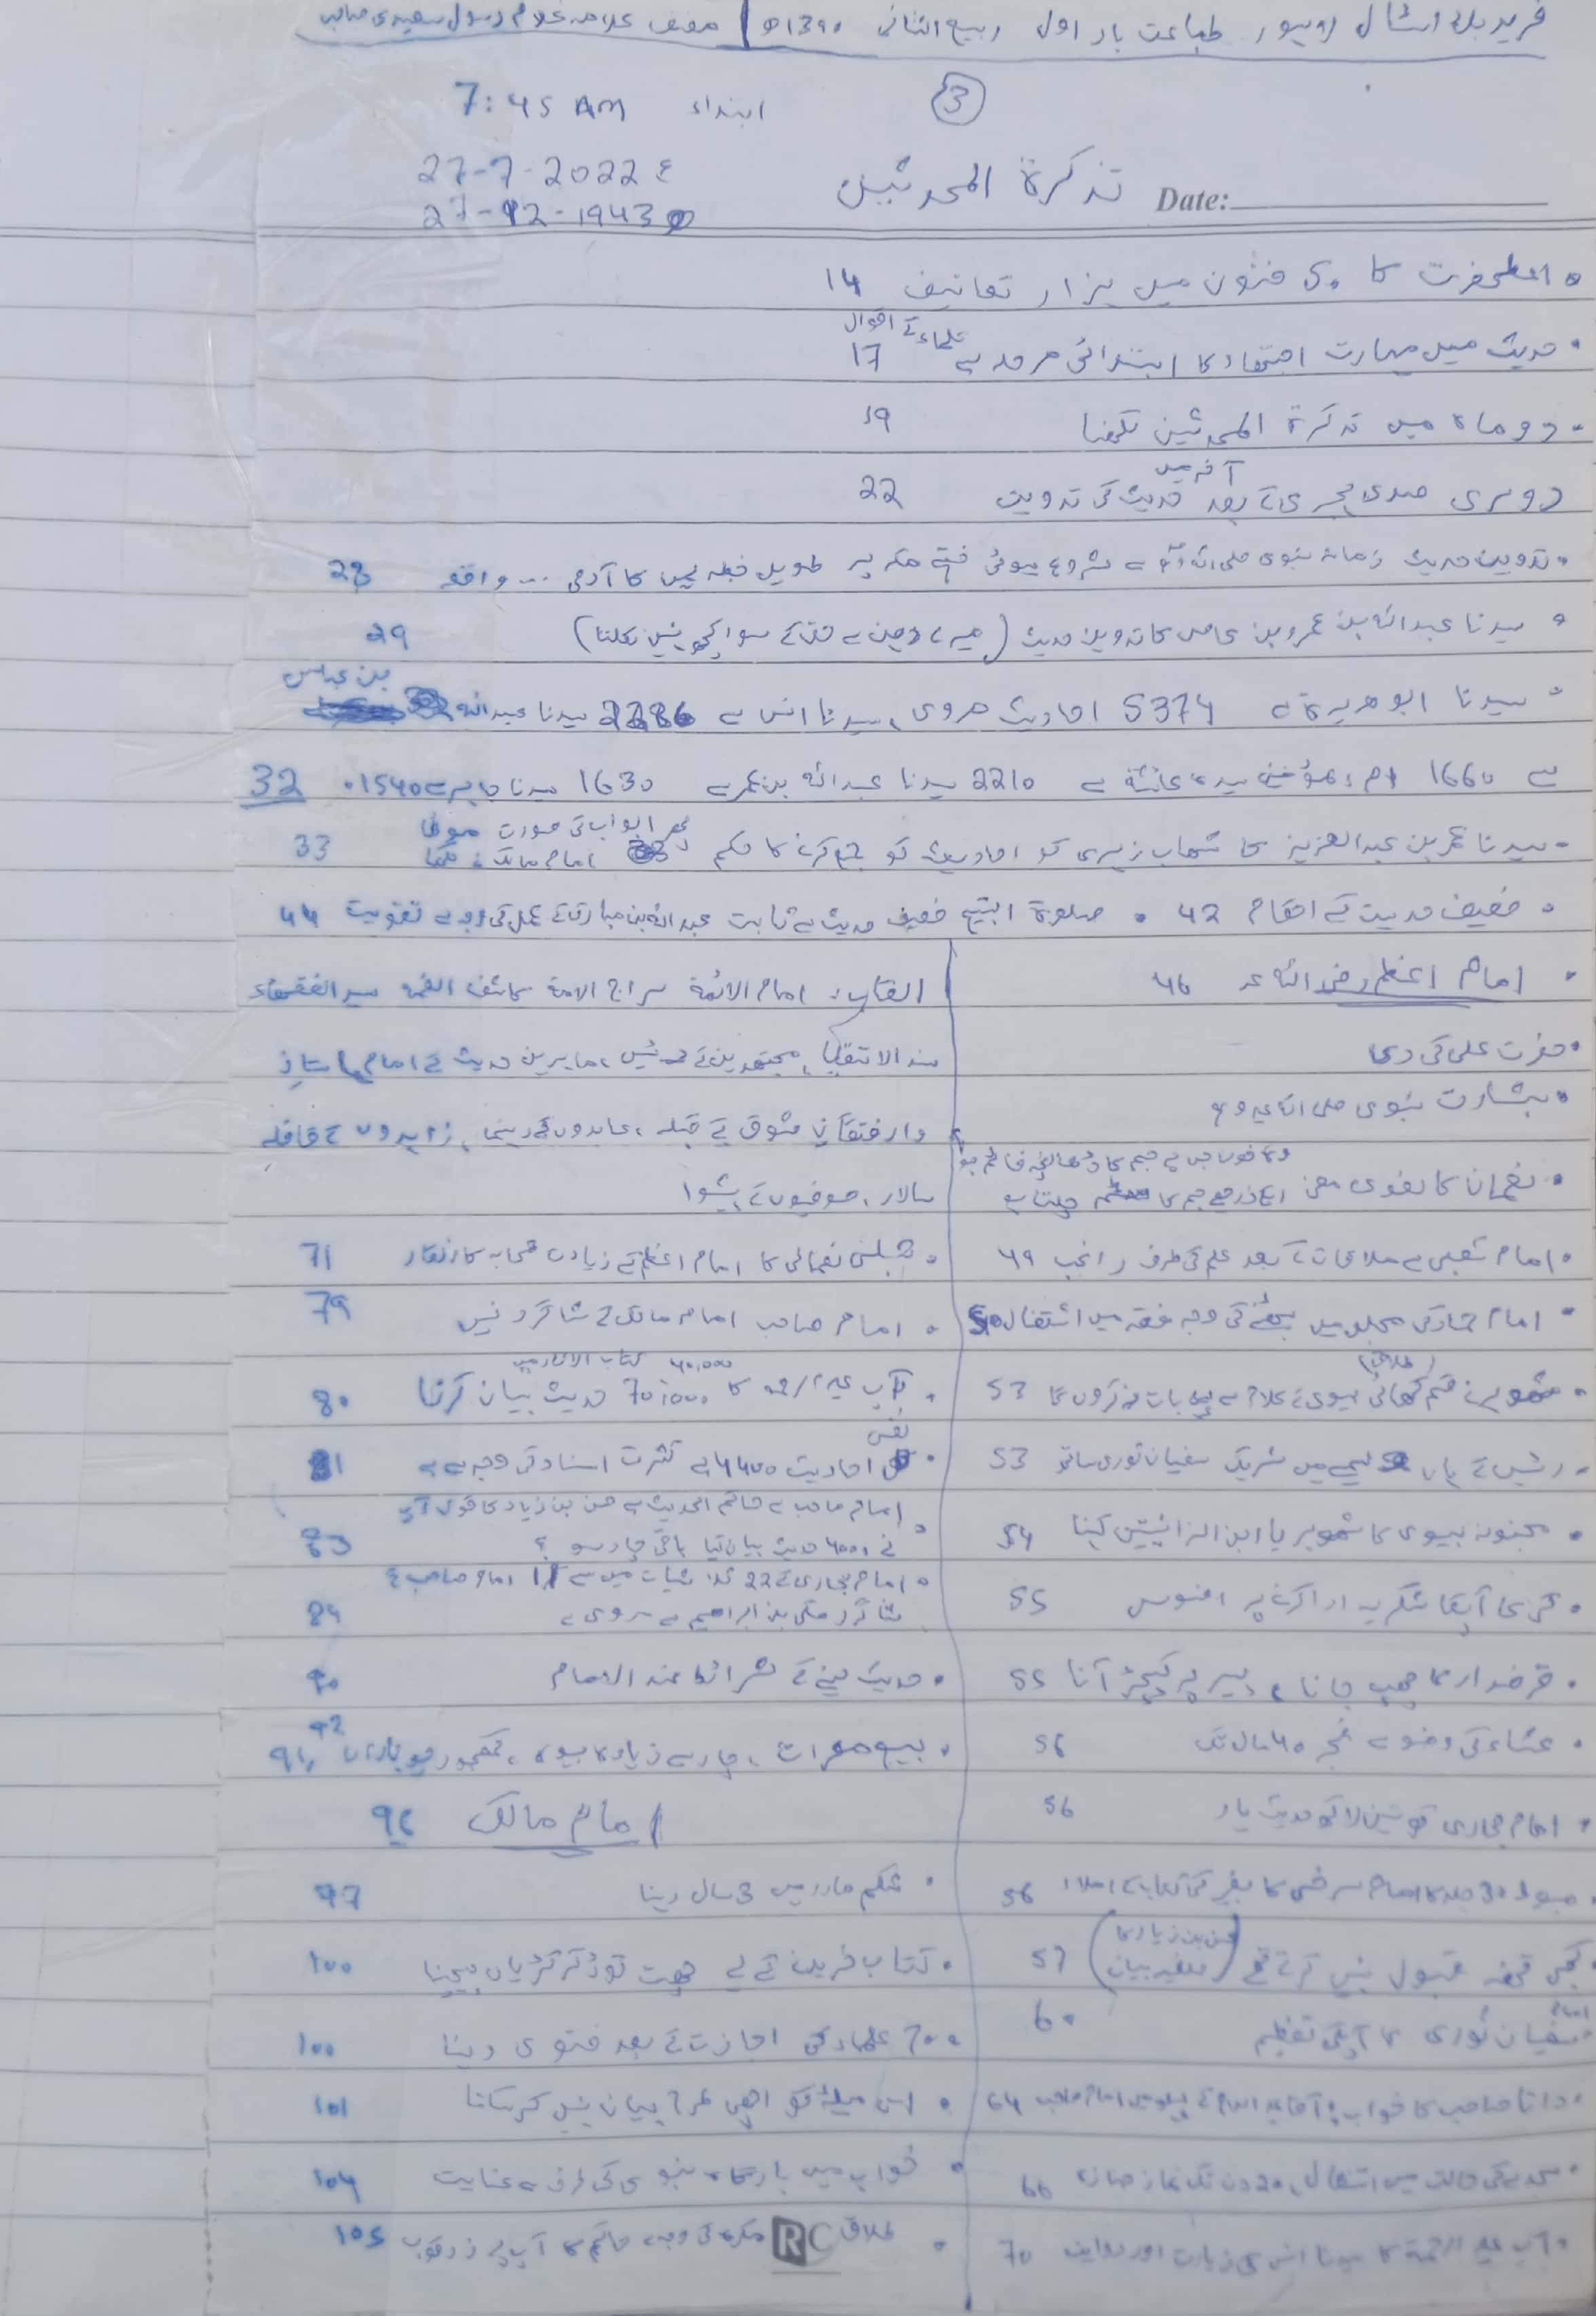 فرید بک اسٹال لاہور طباعت بار اول ربیع الثانی 1390ھ مصنف علامہ غلام رسول سعیدی صاحب
3
ابتداء 7:45 AM
27-7-2022ء
27-12-1943ھ
تذکرۃ المحدثین
Date:
اعلحضرت کا 50 فنون میں ہزار تصانیف 14
حدیث میں مہارت اجتہاد کا ابتدائی مرحلہ ہے علماء کے اقوال 17
دو ماہ میں تذکرۃ المحدثین لکھنا 19
دوسری صدی ہجری کے بعد آخر میں حدیث کی تدوین 22
تدوین حدیث زمانہ نبوی صلی اللہ سے شروع ہوئی فتح مکہ پر طویل خطبہ یمن کا آدمی ... واقعہ 23
سیدنا عبداللہ بن عمرو بن عاص کا تدوین حدیث (میرے دہن سے حق کے سوا کچھ نہیں نکلتا) 29
سیدنا ابوھریرۃ سے 5374 احادیث مروی، سیدنا انس سے 2286 سیدنا عبداللہ بن عباس
سے 1660 ام المؤمنین سیدہ عائشۃ سے 2210 سیدنا عبداللہ بن عمر سے 1630 سیدنا جابر سے 1540 32
سیدنا عمر بن عبدالعزیز کا شھاب زہری کو احادیث کو جمع کرنے کا حکم پھر ابواب کی صورت موطا امام مالک نے لکھا 33
ضعیف حدیث کے اقسام 42 صلوۃ التسبیح ضعیف حدیث سے ثابت عبداللہ بن مبارک کے عمل کی وجہ سے تقویت 44
امام اعظم رضی اللہ عنہ 46
حضرت علی کی دعا
بشارت نبوی صلی اللہ علیہ وسلم
نعمان کا لغوی معنی وہ خون جس سے جسم کا ڈھانچہ قائم ہو اسکے ذریعے جسم کا چلتا ہے
امام شعبی سے ملاقات کے بعد علم کی طرف راغب 49
امام حماد کی مجلس میں بیٹھنے کی وجہ فقہ میں اشتغال 50
شوہر نے قسم کھائی بیوی سے (طلاق) پہلے بات نہ کروں گا 53
رئیس کے ہاں ولیمے میں شریک سفیان ثوری ساتھ 53
مجنونہ بیوی کا شوہر یا ابن الزانیتین کہنا 54
کا آپکا شکریہ ادا کرنے پر افسوس 55
قرضدار کا چھپ جانا، پیر پر کیچڑ آنا 55
عشاء کی وضو سے فجر 40 سال تک 56
امام بخاری کو تین لاکھ حدیث یاد 56
مبسوط 30 جلد کا امام سرخسی کا بغیر کسی کتاب کے املاء 56
کبھی تحفہ قبول نہیں کرتے تھے (حسن بن زیاد کا حلفیہ بیان) 57
امام سفیان ثوری کا آپکی تعظیم 60
داتا صاحب کا خواب آقا علیہ السلام کے پہلو میں امام صاحب 64
سجدے کی حالت میں انتقال، 20 دن تک نماز جنازہ 66
آپ علیہ الرحمۃ کا سیدنا انس کی زیارت اور روایت 70
القاب: امام الائمۃ سراج الامۃ کاشف الغمہ سید الفقھاء
سند الاتقیاء، مجتھدین کے رئیس، ماہرین حدیث کے امام استاذ
وارفتگان شوق کے قبلہ، عابدوں کے رہنما، زاہدوں کے قافلہ
سالار، صوفیوں کے پیشوا
شبلی نعمانی کا امام اعظم کے زیارت صحابہ کا انکار 71
امام صاحب امام مالک کے شاگرد نہیں 79
آپ علیہ الرحمہ کا 70,000 حدیث بیان کرنا 40,000 کتاب الآثار میں 80
نفس احادیث 4400 ہے کثرت اسناد کی وجہ سے ہے 81
امام صاحب سے حاتم الحدیث ہے حسن بن زیاد کا قول آپ
نے 4000 حدیث بیان کیا باقی چار سو؟ 83
امام بخاری کے 22 ثلاثیات میں سے 11 امام صاحب کے
شاگرد مکی بن ابراھیم سے مروی ہے 84
حدیث لینے کے شرائط عند الامام 90
چار سے زیادہ بیوی، 91, 92
امام مالک 96
شکم مادر میں 3 سال رہنا 97
کتاب خریدنے کے لیے چھت توڑ کر کڑیاں بیچنا 100
700 علماء کی اجازت کے بعد فتوی دینا 100
اس مسئلہ کو اچھی طرح بیان نہیں کرسکتا 101
خواب میں بارگاہ نبوی کی طرف سے عنایت 104
طلاق مکرہ کی وجہ سے حاکم کا آپ پر زدوکوب 105
RC